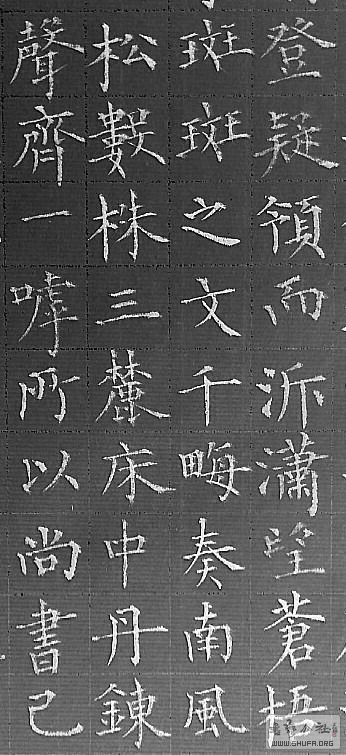 登疑領而泝瀟望蒼梧
斑斑之文千畮奏南風
松數株三麓床中丹鍊
聲齊一嘩所以尚書已
WWW.SHUFA.ORG